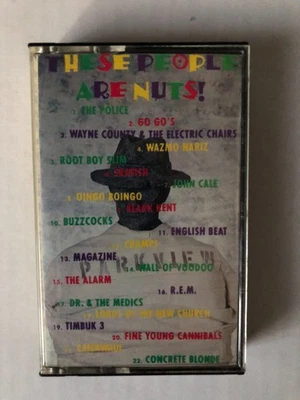 THESE PEOPLE
ARE NUTS!
1. THE POLICE
2. GO GO'S
3. WAYNE COUNTY & THE ELECTRIC CHAIRS
4. WAZMO NARIZ
5. ROOT BOY SLIM
6. SKAFISH
7. JOHN CALE
8. OINGO BOINGO
9. KLARK KENT
10. BUZZCOCKS
11. ENGLISH BEAT
12. CRAMPS
13. MAGAZINE
14. WALL OF VOODOO
PARKVIEW
15. THE ALARM
16. R.E.M.
17. DR. & THE MEDICS
18. LORDS OF THE NEW CHURCH
19. TIMBUK 3
20. FINE YOUNG CANNIBALS
22. CONCRETE BLONDE